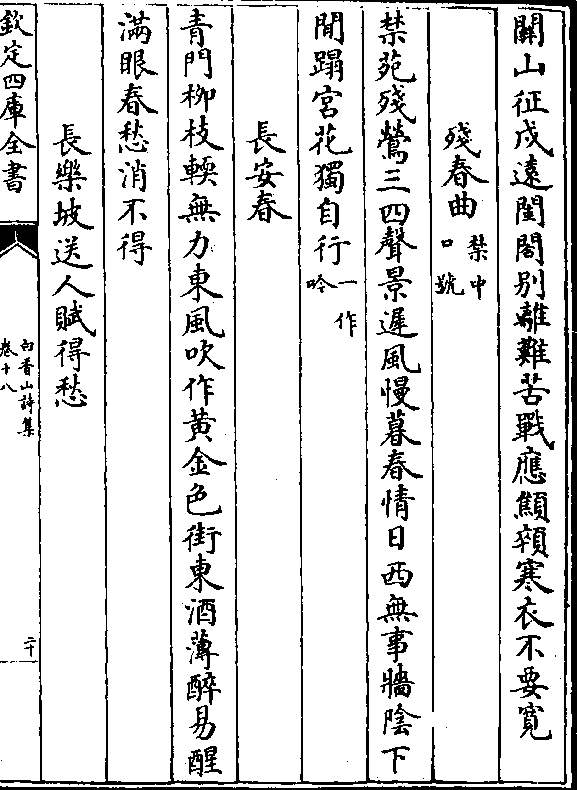 關山征戍遠閨閤别離難苦戰應顦顇寒衣不要寛
殘春曲禁中口號
禁苑殘鶯三四聲景遲風慢暮春情日西無事牆隂下
閒蹋宮花獨自行一作吟
長安春
青門柳枝輭無力東風吹作黄金色街東酒薄醉易醒
滿眼春愁消不得
長樂坡送人賦得愁
欽定四庫全書
白香山詩集
卷十八
二十